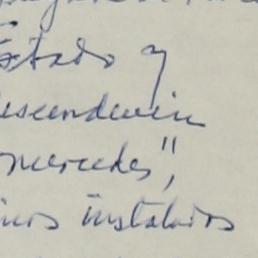 Estado y
descendencia
mercedes",
inos instalados